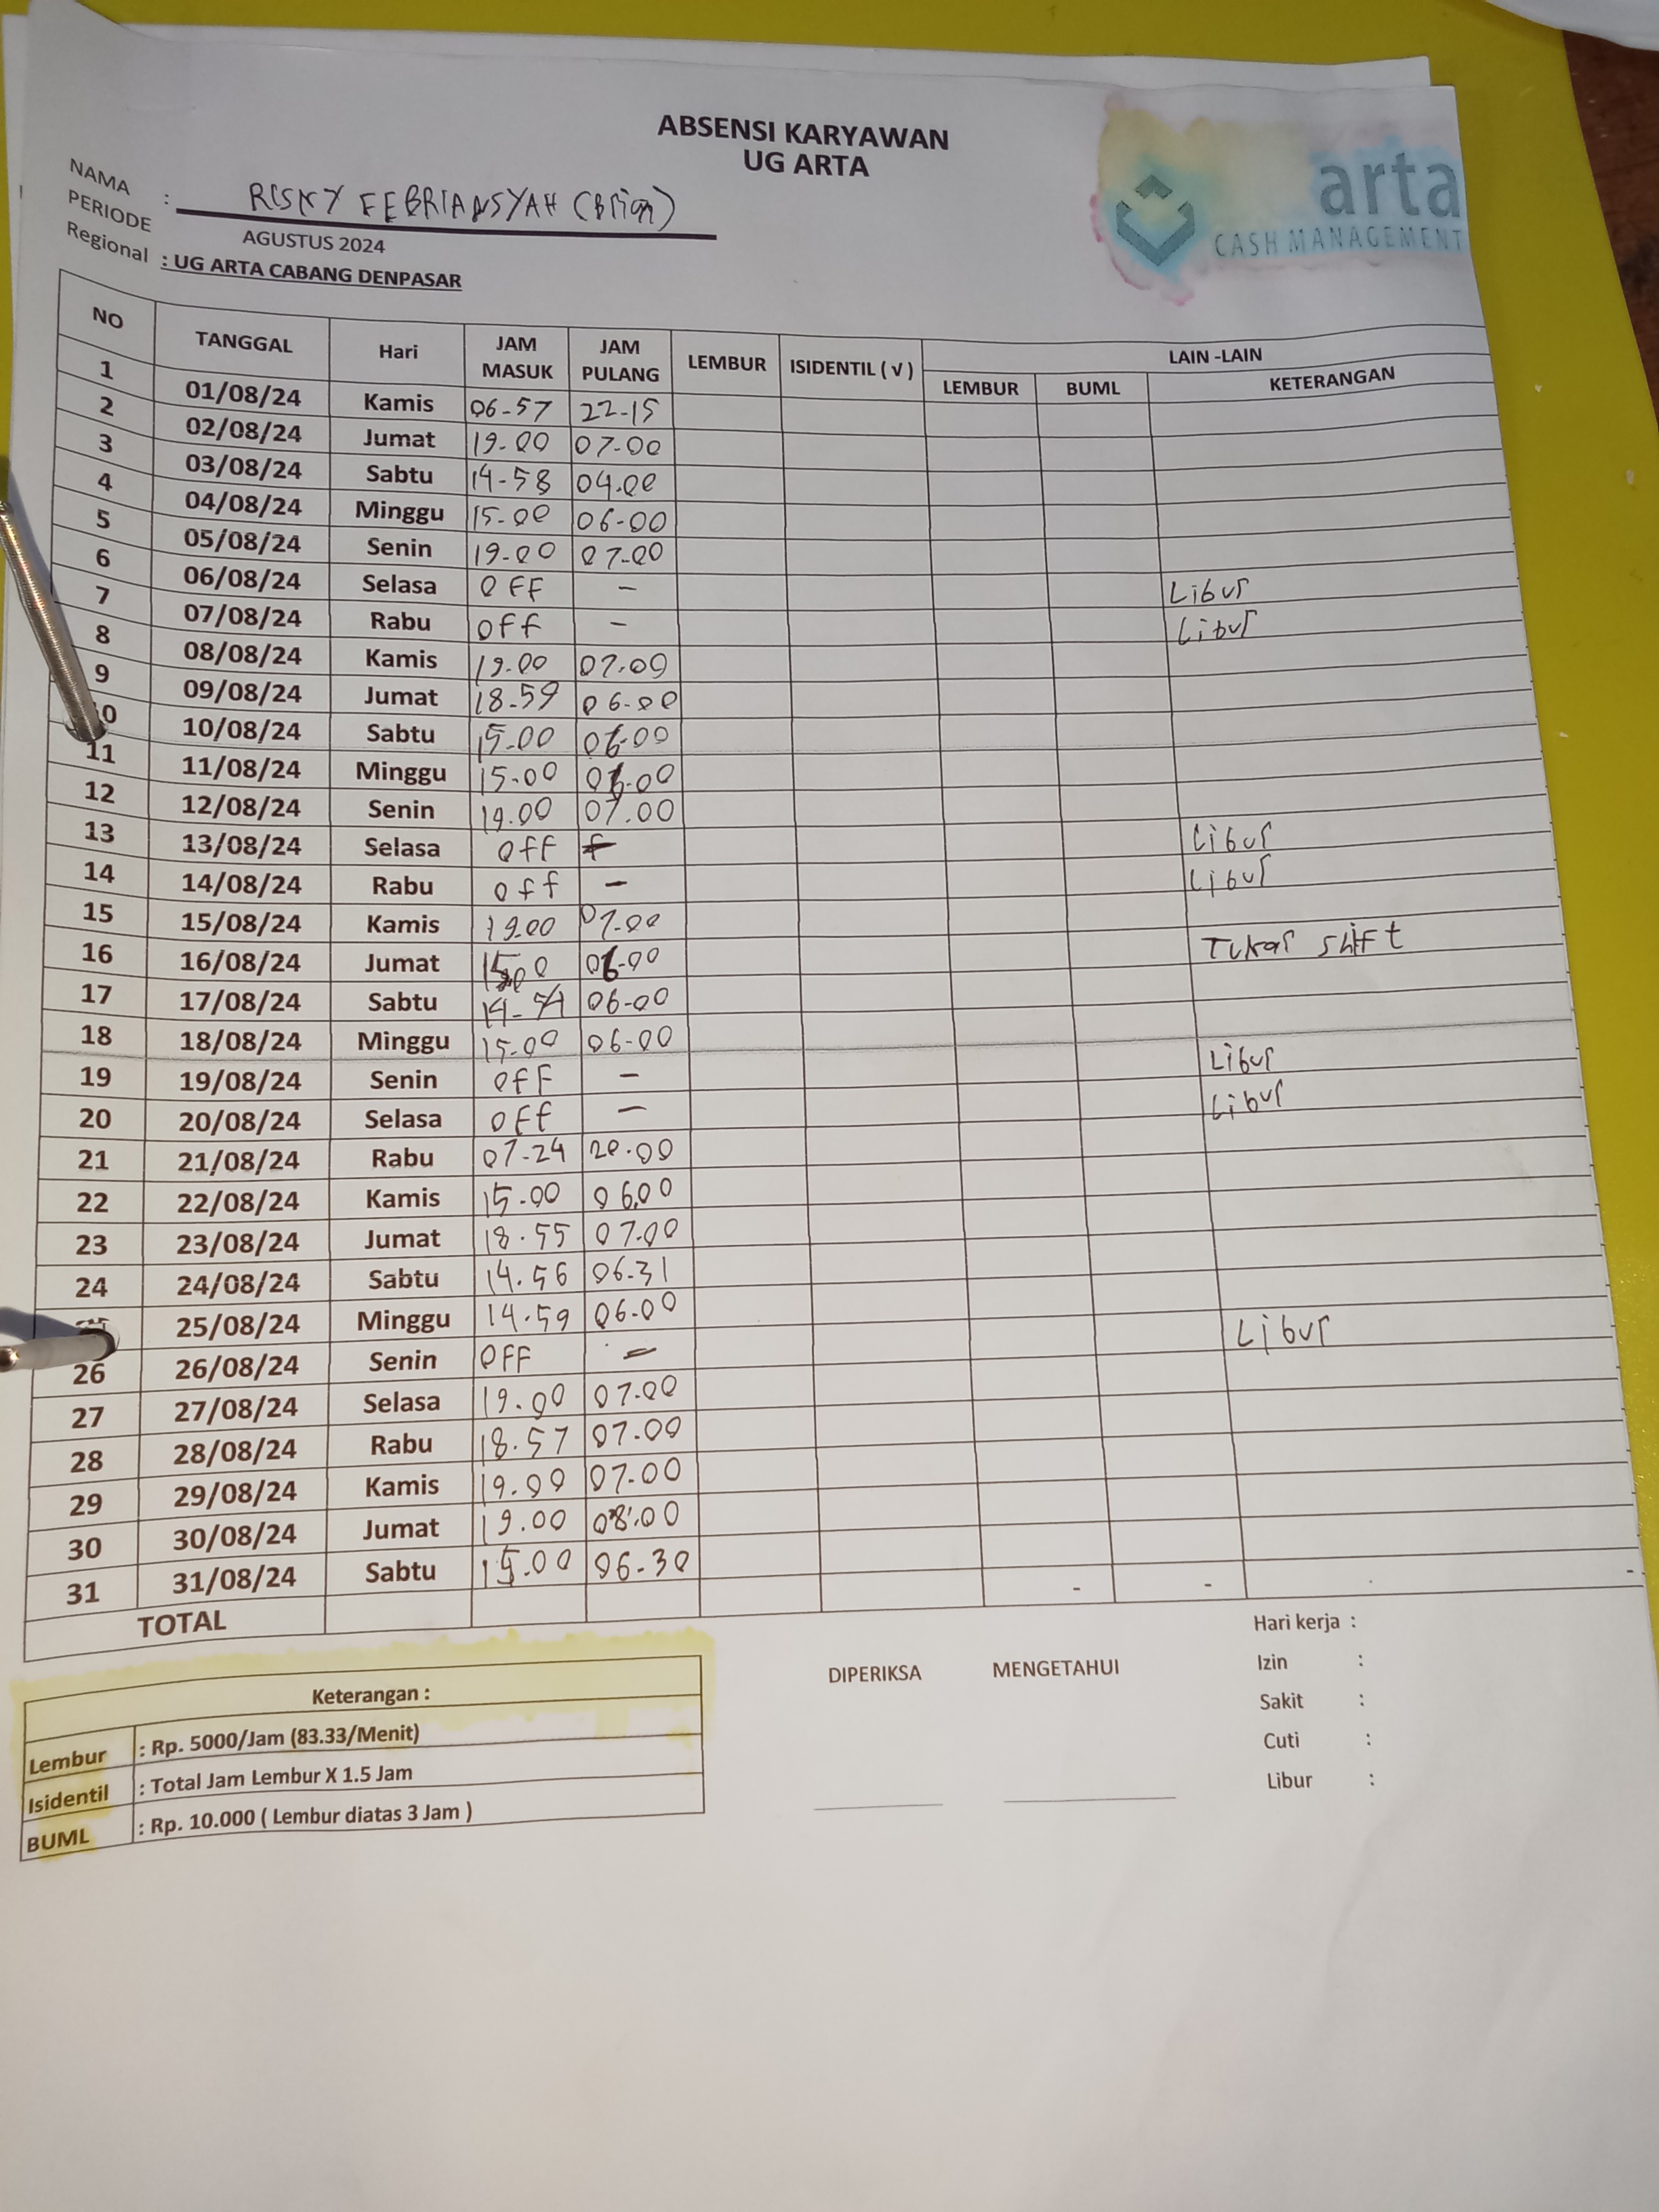 ABSENSI KARYAWAN
UG ARTA
arta
CASH MANAGEMENT
NAMA : RISKY FEBRIANSYAH (Brian)
PERIODE AGUSTUS 2024
Regional : UG ARTA CABANG DENPASAR
NO TANGGAL Hari JAM MASUK JAM PULANG LEMBUR ISIDENTIL ( √ ) LAIN -LAIN
LEMBUR BUML KETERANGAN
1 01/08/24 Kamis 06-57 22-15
2 02/08/24 Jumat 19-00 07-00
3 03/08/24 Sabtu 14-58 04.00
4 04/08/24 Minggu 15-00 06-00
5 05/08/24 Senin 19-00 07-00
6 06/08/24 Selasa OFF - Libur
7 07/08/24 Rabu OFF - Libur
8 08/08/24 Kamis 19.00 07.00
9 09/08/24 Jumat 18-59 06-00
10 10/08/24 Sabtu 15-00 06-00
11 11/08/24 Minggu 15-00 06-00
12 12/08/24 Senin 19.00 07.00
13 13/08/24 Selasa OFF Libur
14 14/08/24 Rabu Off - Libur
15 15/08/24 Kamis 19.00 07.00
16 16/08/24 Jumat 15.00 06-00 Tukar shift
17 17/08/24 Sabtu 06-00
18 18/08/24 Minggu 15-00 06-00
19 19/08/24 Senin OFF - Libur
20 20/08/24 Selasa OFF - Libur
21 21/08/24 Rabu 07-24 20.00
22 22/08/24 Kamis 15-00 06.00
23 23/08/24 Jumat 18.55 07.00
24 24/08/24 Sabtu 14.56 06.31
25/08/24 Minggu 14.59 06-00
26 26/08/24 Senin OFF - Libur
27 27/08/24 Selasa 19.00 07.00
28 28/08/24 Rabu 18.57 07.00
29 29/08/24 Kamis 19.00 07-00
30 30/08/24 Jumat 19.00 08.00
31 31/08/24 Sabtu 15.00 06.30
TOTAL - - -
Keterangan :
Lembur : Rp. 5000/Jam (83.33/Menit)
Isidentil : Total Jam Lembur X 1.5 Jam
BUML : Rp. 10.000 ( Lembur diatas 3 Jam )
DIPERIKSA MENGETAHUI
Hari kerja :
Izin :
Sakit :
Cuti :
Libur :